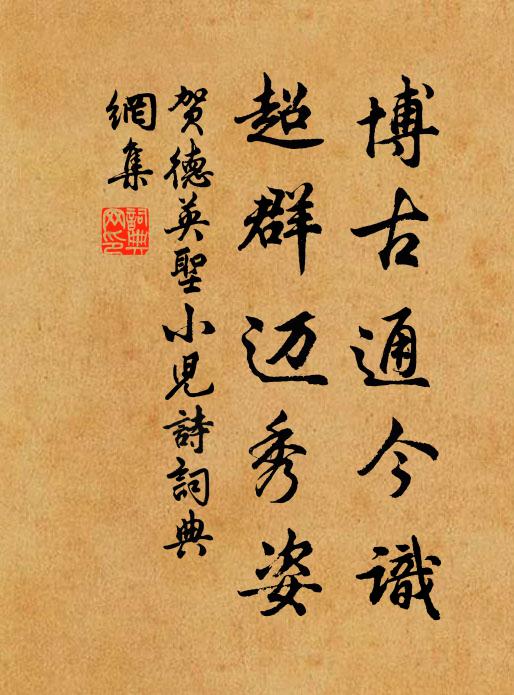 博古通今識
超群迈秀姿
賀德英聖小児詩詞典
網集
詞典网印